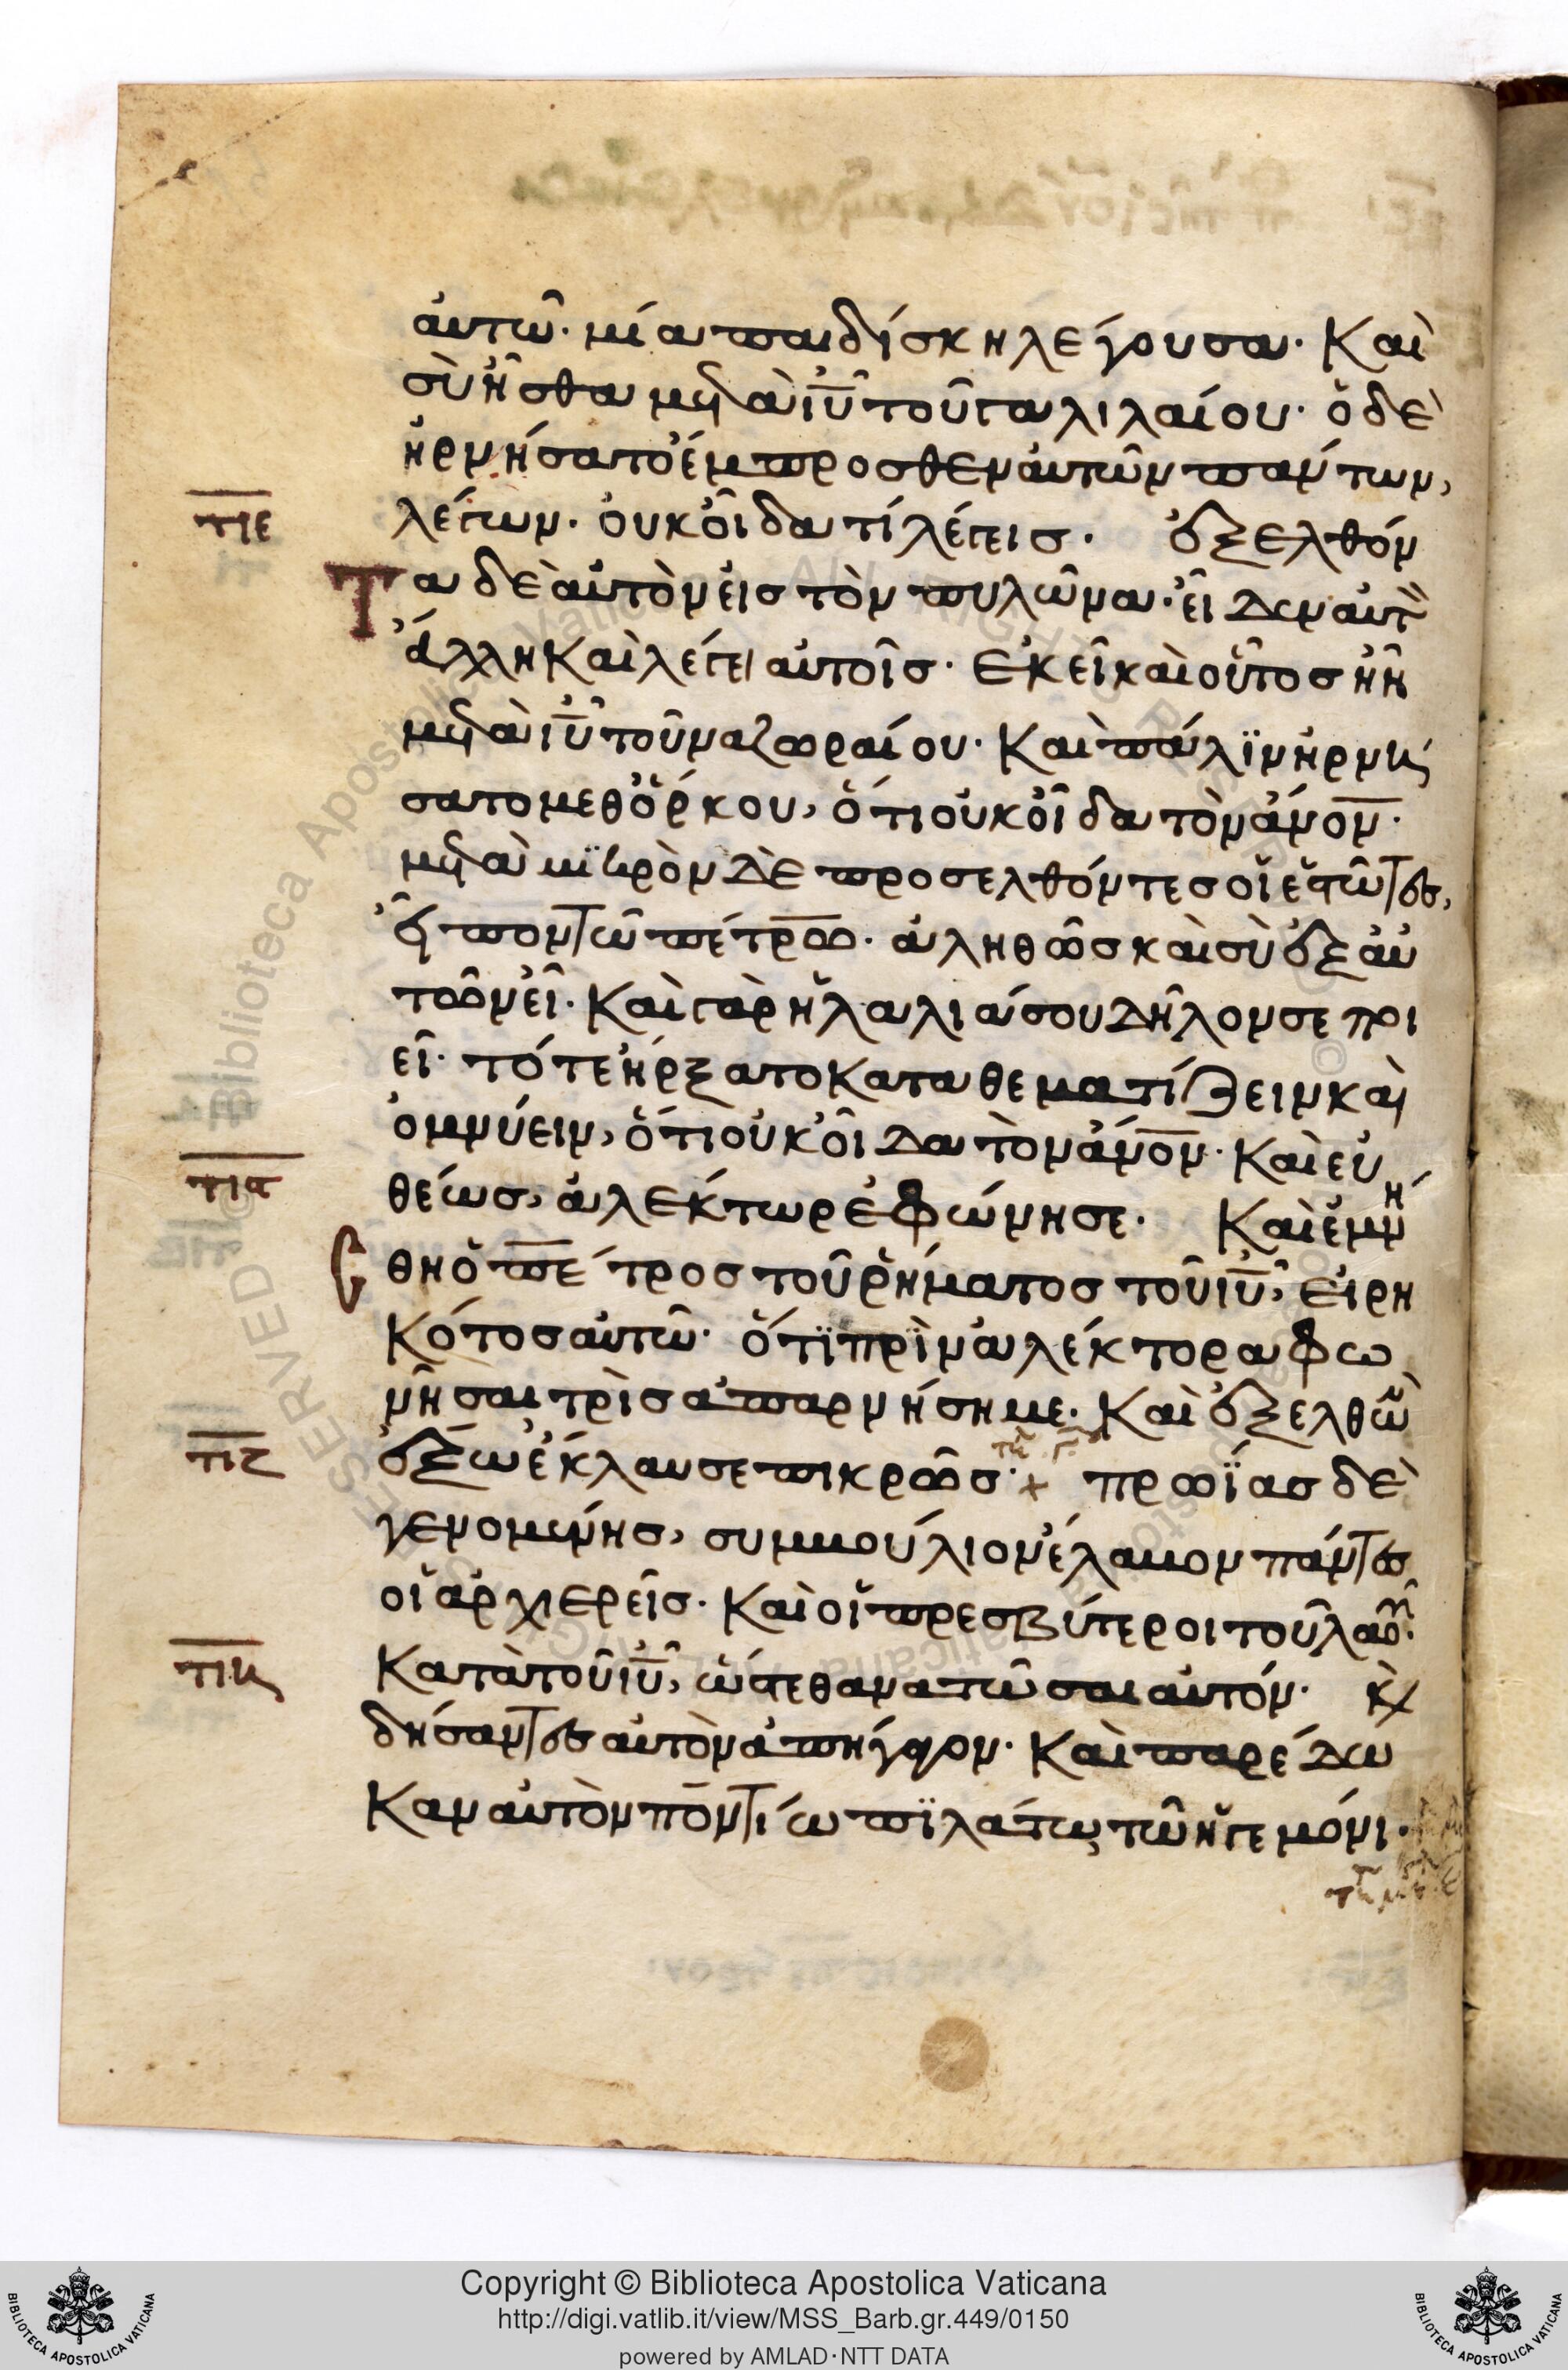 αὐτῶ· μία παιδίσκη λέγουσα· Καὶ
σὺ ἦσθα μετὰ ἰῦ τοῦ γαλιλαίου· ὁ δὲ
ἠρνήσατο ἔμπροσθεν αὐτῶν πάντων,
πε
λέγων· οὐκ οἶδα τί λέγεις· ἐξελθόν
Τα δὲ αὐτὸν εἰς τὸν πυλῶνα· εἶδεν αὐτὸν
ἄλλη Καὶ λέγει αὐτοῖς· Ἐκεῖ καὶ οὗτος ἦν
μετὰ ἰῦ τοῦ ναζωραίου· Καὶ πάλϊν ἠρνή
σατο μεθ ὅρκου, ὅτι οὐκ οἶδα τὸν ἄνον·
μετὰ μϊκρὸν δὲ προσελθόντες οἱ ἑστῶτες,
εἶπον τῶ πέτρω· ἀληθῶς καὶ σὺ ἐξ αὐ
τῶν εἶ· Καὶ γὰρ ἡ λαλιά σου δῆλον σε ποι
εῖ· τότε ἤρξατο Καταθεματίζειν καὶ
ὀμνύειν, ὅτι οὐκ οἶδα τὸν ἄνον· Καὶ εὐ
θέως, ἀλέκτωρ ἐφώνησε· Καὶ ἐμνή
Ε θη ὁ πέτρος τοῦ ῥήματος τοῦ ἰῦ, εἰρη
Κότος αὐτῶ· ὅτϊ πρὶν ἀλέκτορα φω
νῆσαι τρὶς ἀπαρνήση με· Καὶ ἐξελθὼν
ἔξω ἔκλαυσε πικρῶς· + πρωΐας δὲ
γενομένης, συμβούλιον ἔλαβον πάντες
οἱ ἀρχιερεῖς· Καὶ οἱ πρεσβύτεροι τοῦ λαοῦ·
Κατὰ τοῦ ἰῦ, ὥστε θανατῶσαι αὐτόν· κὲ
δήσαντες αὐτὸν ἀπήγαγον· Καὶ παρέδω
Καν αὐτὸν ποντίω πϊλάτω τῶ ἡγεμόνι·